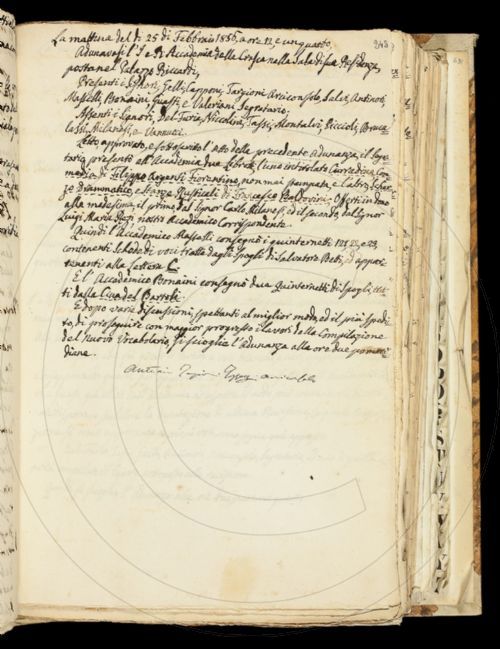 La mattina del dì 25 di Febbraio 1836, a ore 12, e un quarto,
Adunavasi l'I e R Accademia della Crusca nella Sala di sua Residenza,
posta nel Palazzo Riccardi,
Presenti i Signori, Gelli, Capponi, Targioni Arciconsolo, Salvi, Antinori,
Masselli, Bonaini, Guasti, e Valeriani Segretario.
Assenti i Signori, Del-Furia, Niccolini, Tassi, Montalvi, Piccioli, Bruca
lassi, Milanesi, e Vannucci.
Letto approvato, e sottoscritto l'atto della precedente Adunanza, il Segre
tario presentò all'Accademia due Libretti, l'uno intitolato Com
media di Filippo Argenti Fiorentino, non mai stampata, e l'altro Scher
zo Drammatico, e Stanze Rusticali di Francesco Baldovini, Offerti in dono
alla medesima, il primo dal Signor Carlo Milanesi, ed il secondo dal Signor
Luigi Maria Rezzi nostro Accademico Corrispondente.
Quindi l'Accademico Masselli consegnò i quinternetti 121, 22, e 23,
contenenti Schede di voci tratte dagli Spogli di Salvatore Betti, ed appar
tenenti alla Lettera C.
E l'Accademico Bonaini consegnò due Quinternetti di Spogli, trat
ti dalla Cina del Bartoli.
E dopo varie discussioni, spettanti al miglior modo, ed il più spedi
to, di proseguire con maggior progresso i lavori della Compilazione
del Nuovo Vocabolario, si scioglie l'Adunanza alla ore due pomeri
diane.